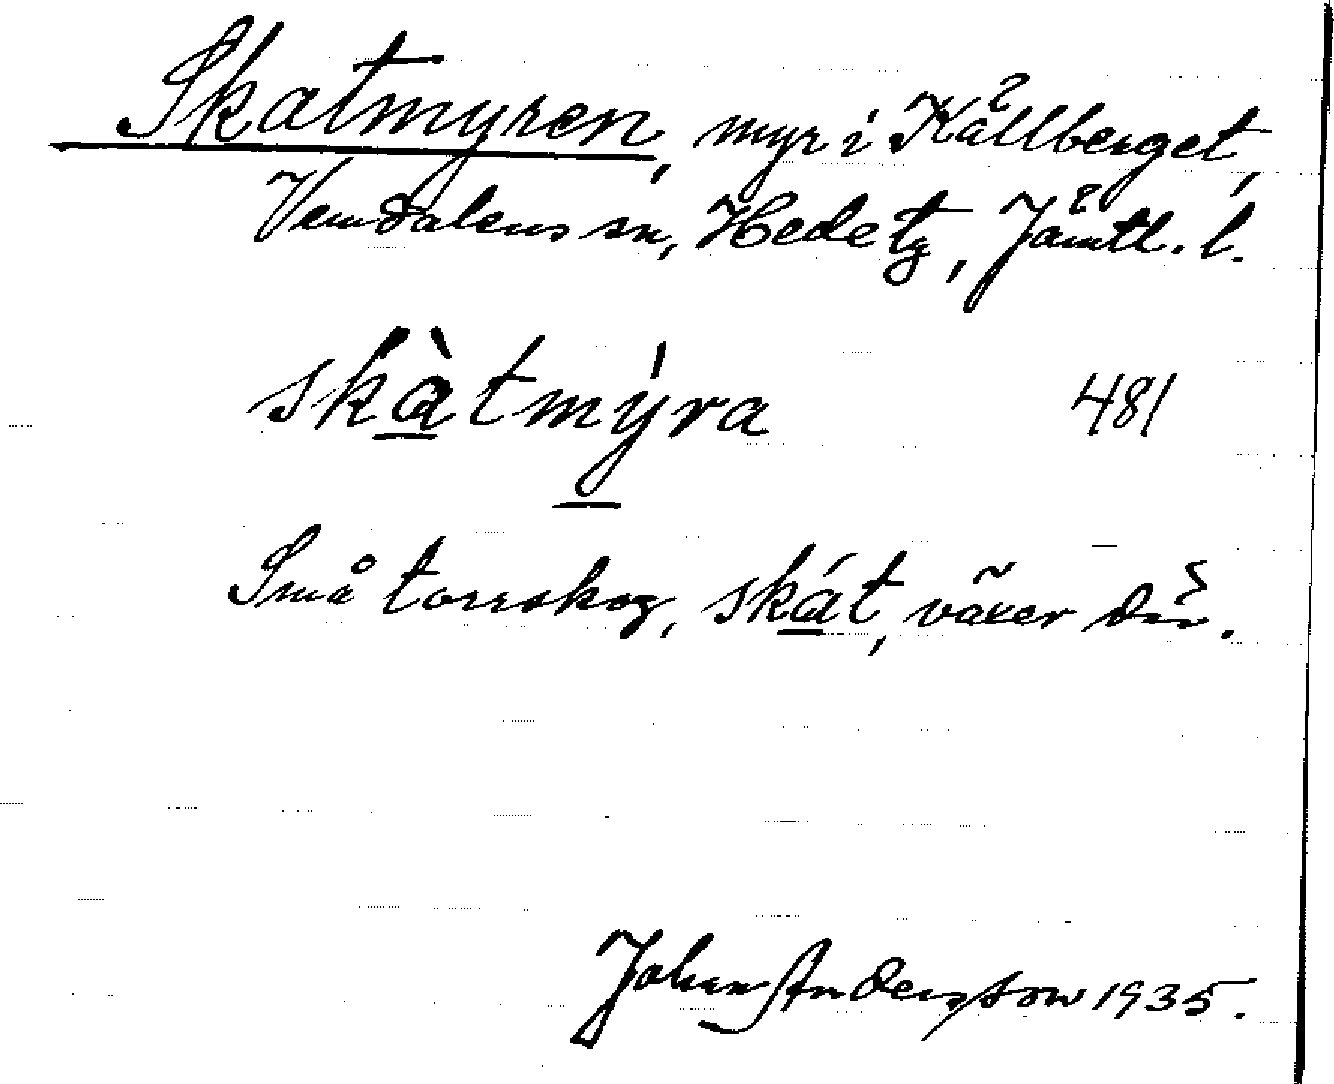 Skatmyren, myr i Källberget,
Vemdalens sn, Hede tg, Jämtl. l.
skàtmýra 481
Små torrskog, skát, växer där.
Johan Andersson 1935.